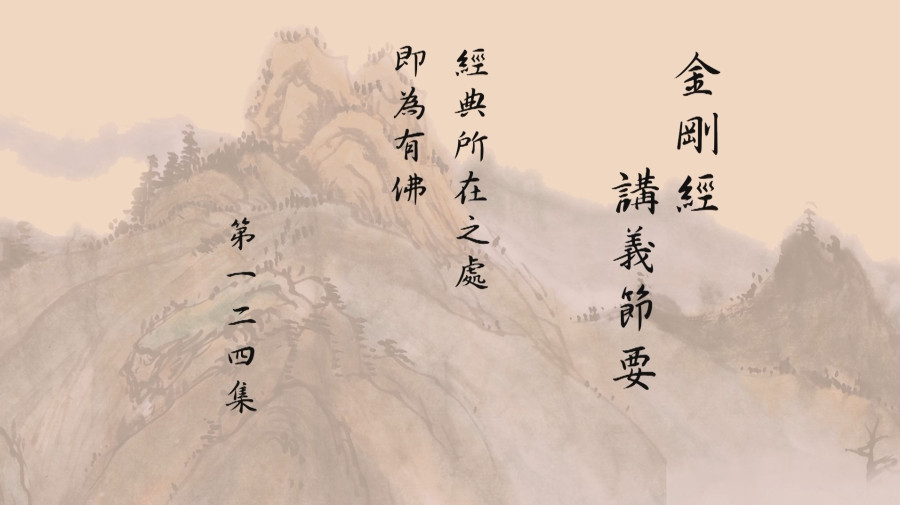 金剛經
講義節要
經典所在之處
即為有佛
第一二四集